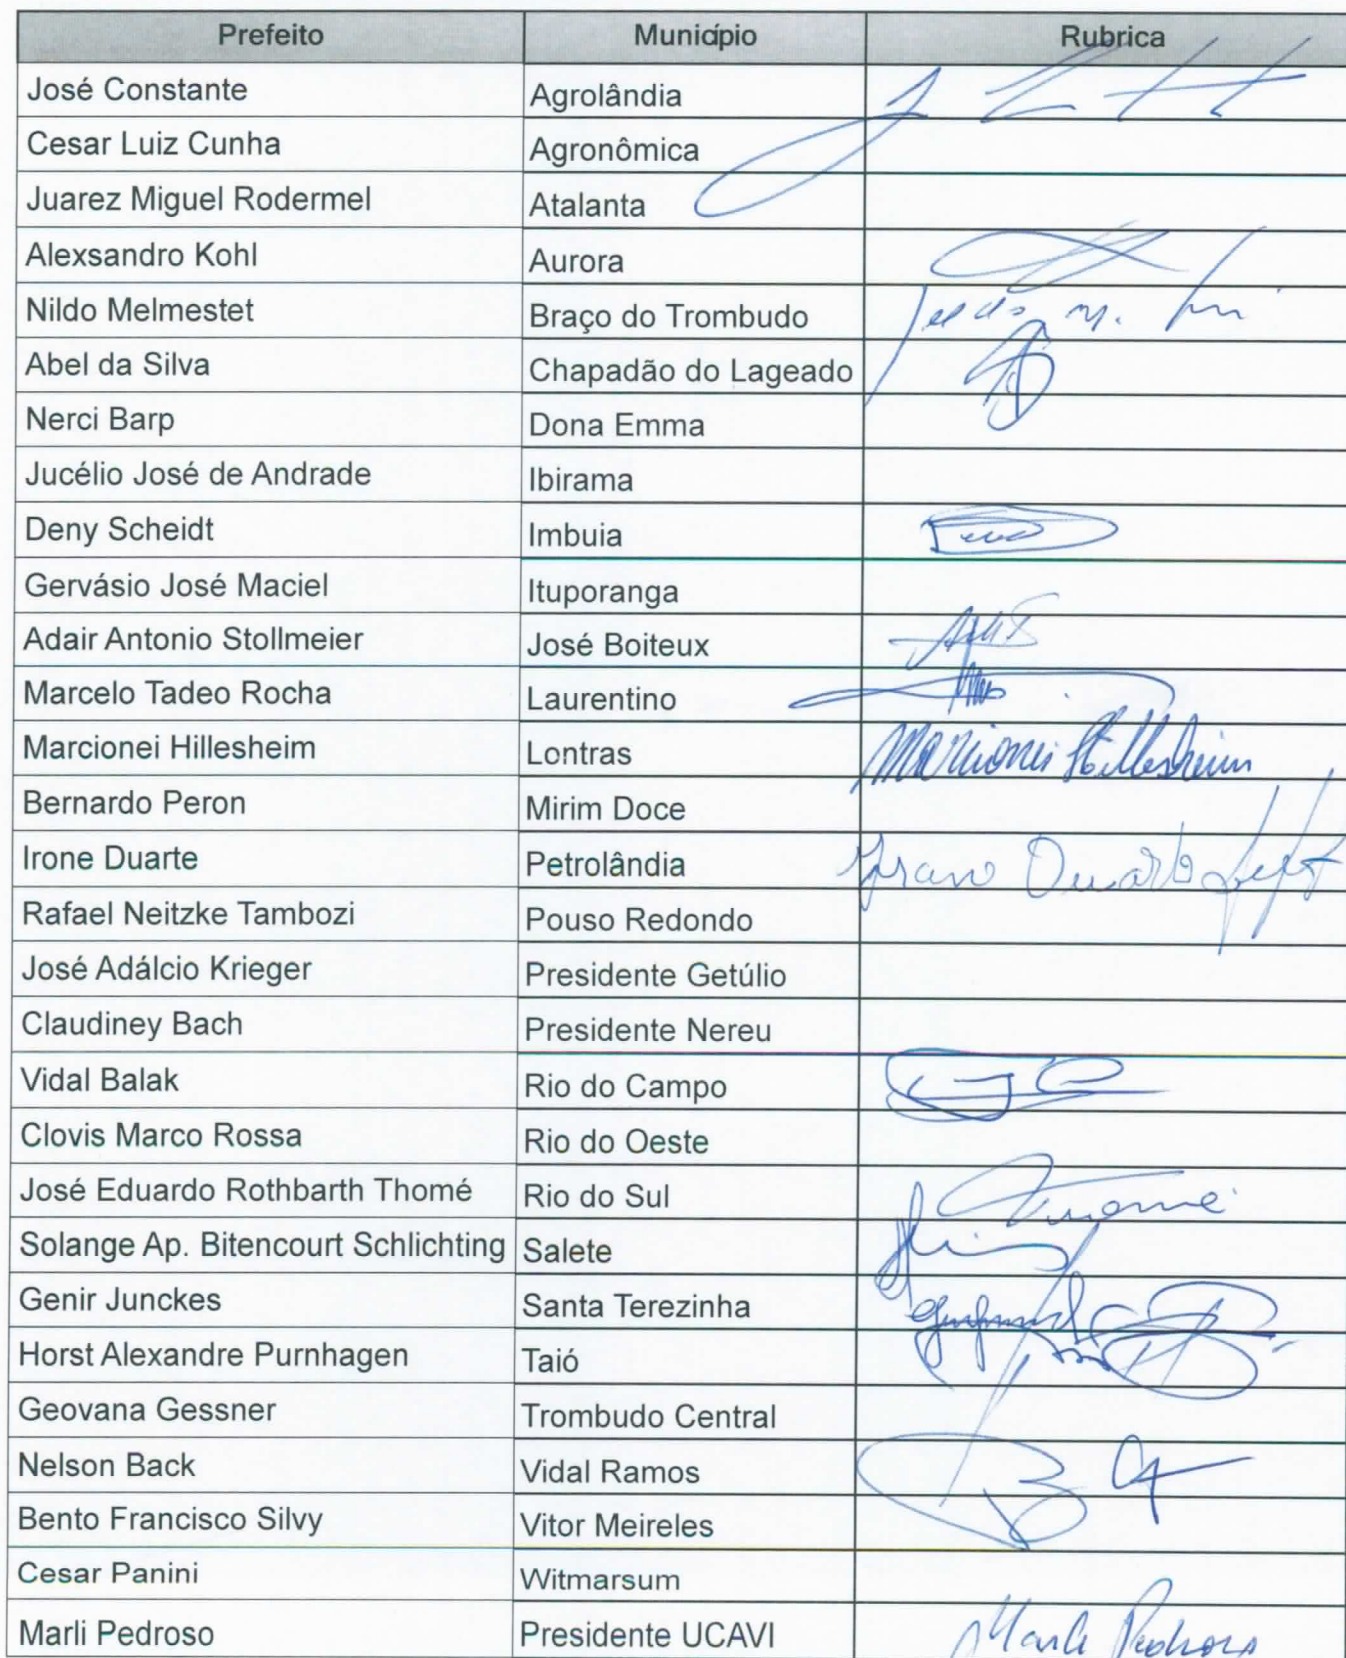 Prefeito Município Rubrica
José Constante Agrolândia
Cesar Luiz Cunha Agronômica
Juarez Miguel Rodermel Atalanta
Alexsandro Kohl Aurora
Nildo Melmestet Braço do Trombudo
Abel da Silva Chapadão do Lageado
Nerci Barp Dona Emma
Jucélio José de Andrade Ibirama
Deny Scheidt Imbuia
Gervásio José Maciel Ituporanga
Adair Antonio Stollmeier José Boiteux
Marcelo Tadeo Rocha Laurentino
Marcionei Hillesheim Lontras Marcionei Hillesheim
Bernardo Peron Mirim Doce
Irone Duarte Petrolândia Duarte
Rafael Neitzke Tambozi Pouso Redondo
José Adálcio Krieger Presidente Getúlio
Claudiney Bach Presidente Nereu
Vidal Balak Rio do Campo
Clovis Marco Rossa Rio do Oeste
José Eduardo Rothbarth Thomé Rio do Sul
Solange Ap. Bitencourt Schlichting Salete
Genir Junckes Santa Terezinha
Horst Alexandre Purnhagen Taió
Geovana Gessner Trombudo Central
Nelson Back Vidal Ramos
Bento Francisco Silvy Vitor Meireles
Cesar Panini Witmarsum
Marli Pedroso Presidente UCAVI Marli Pedroso